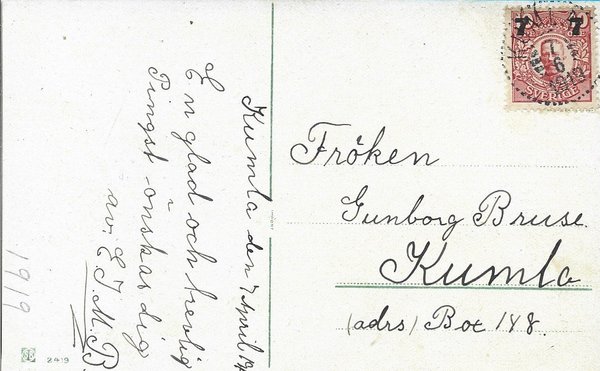 Kumla den 7 April 19
En glad och herlig
Pingst önskas dig
av E. J. M. B.
1919
2419
7 7
KUMLA
1919
SVERIGE
Fröken
Gunborg Bruse.
Kumla
(adrs) Box 148.